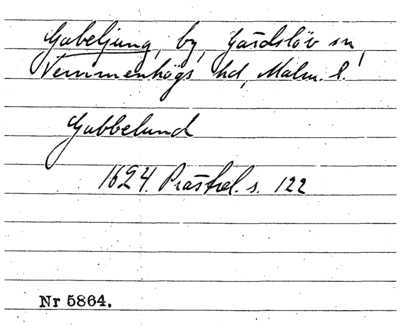 Gabeljung, by, Gärdslöv sn,
Vemmenhögs hd, Malm. l.
Gabbelund
1624. Prästrel. s. 122
Nr 5864.